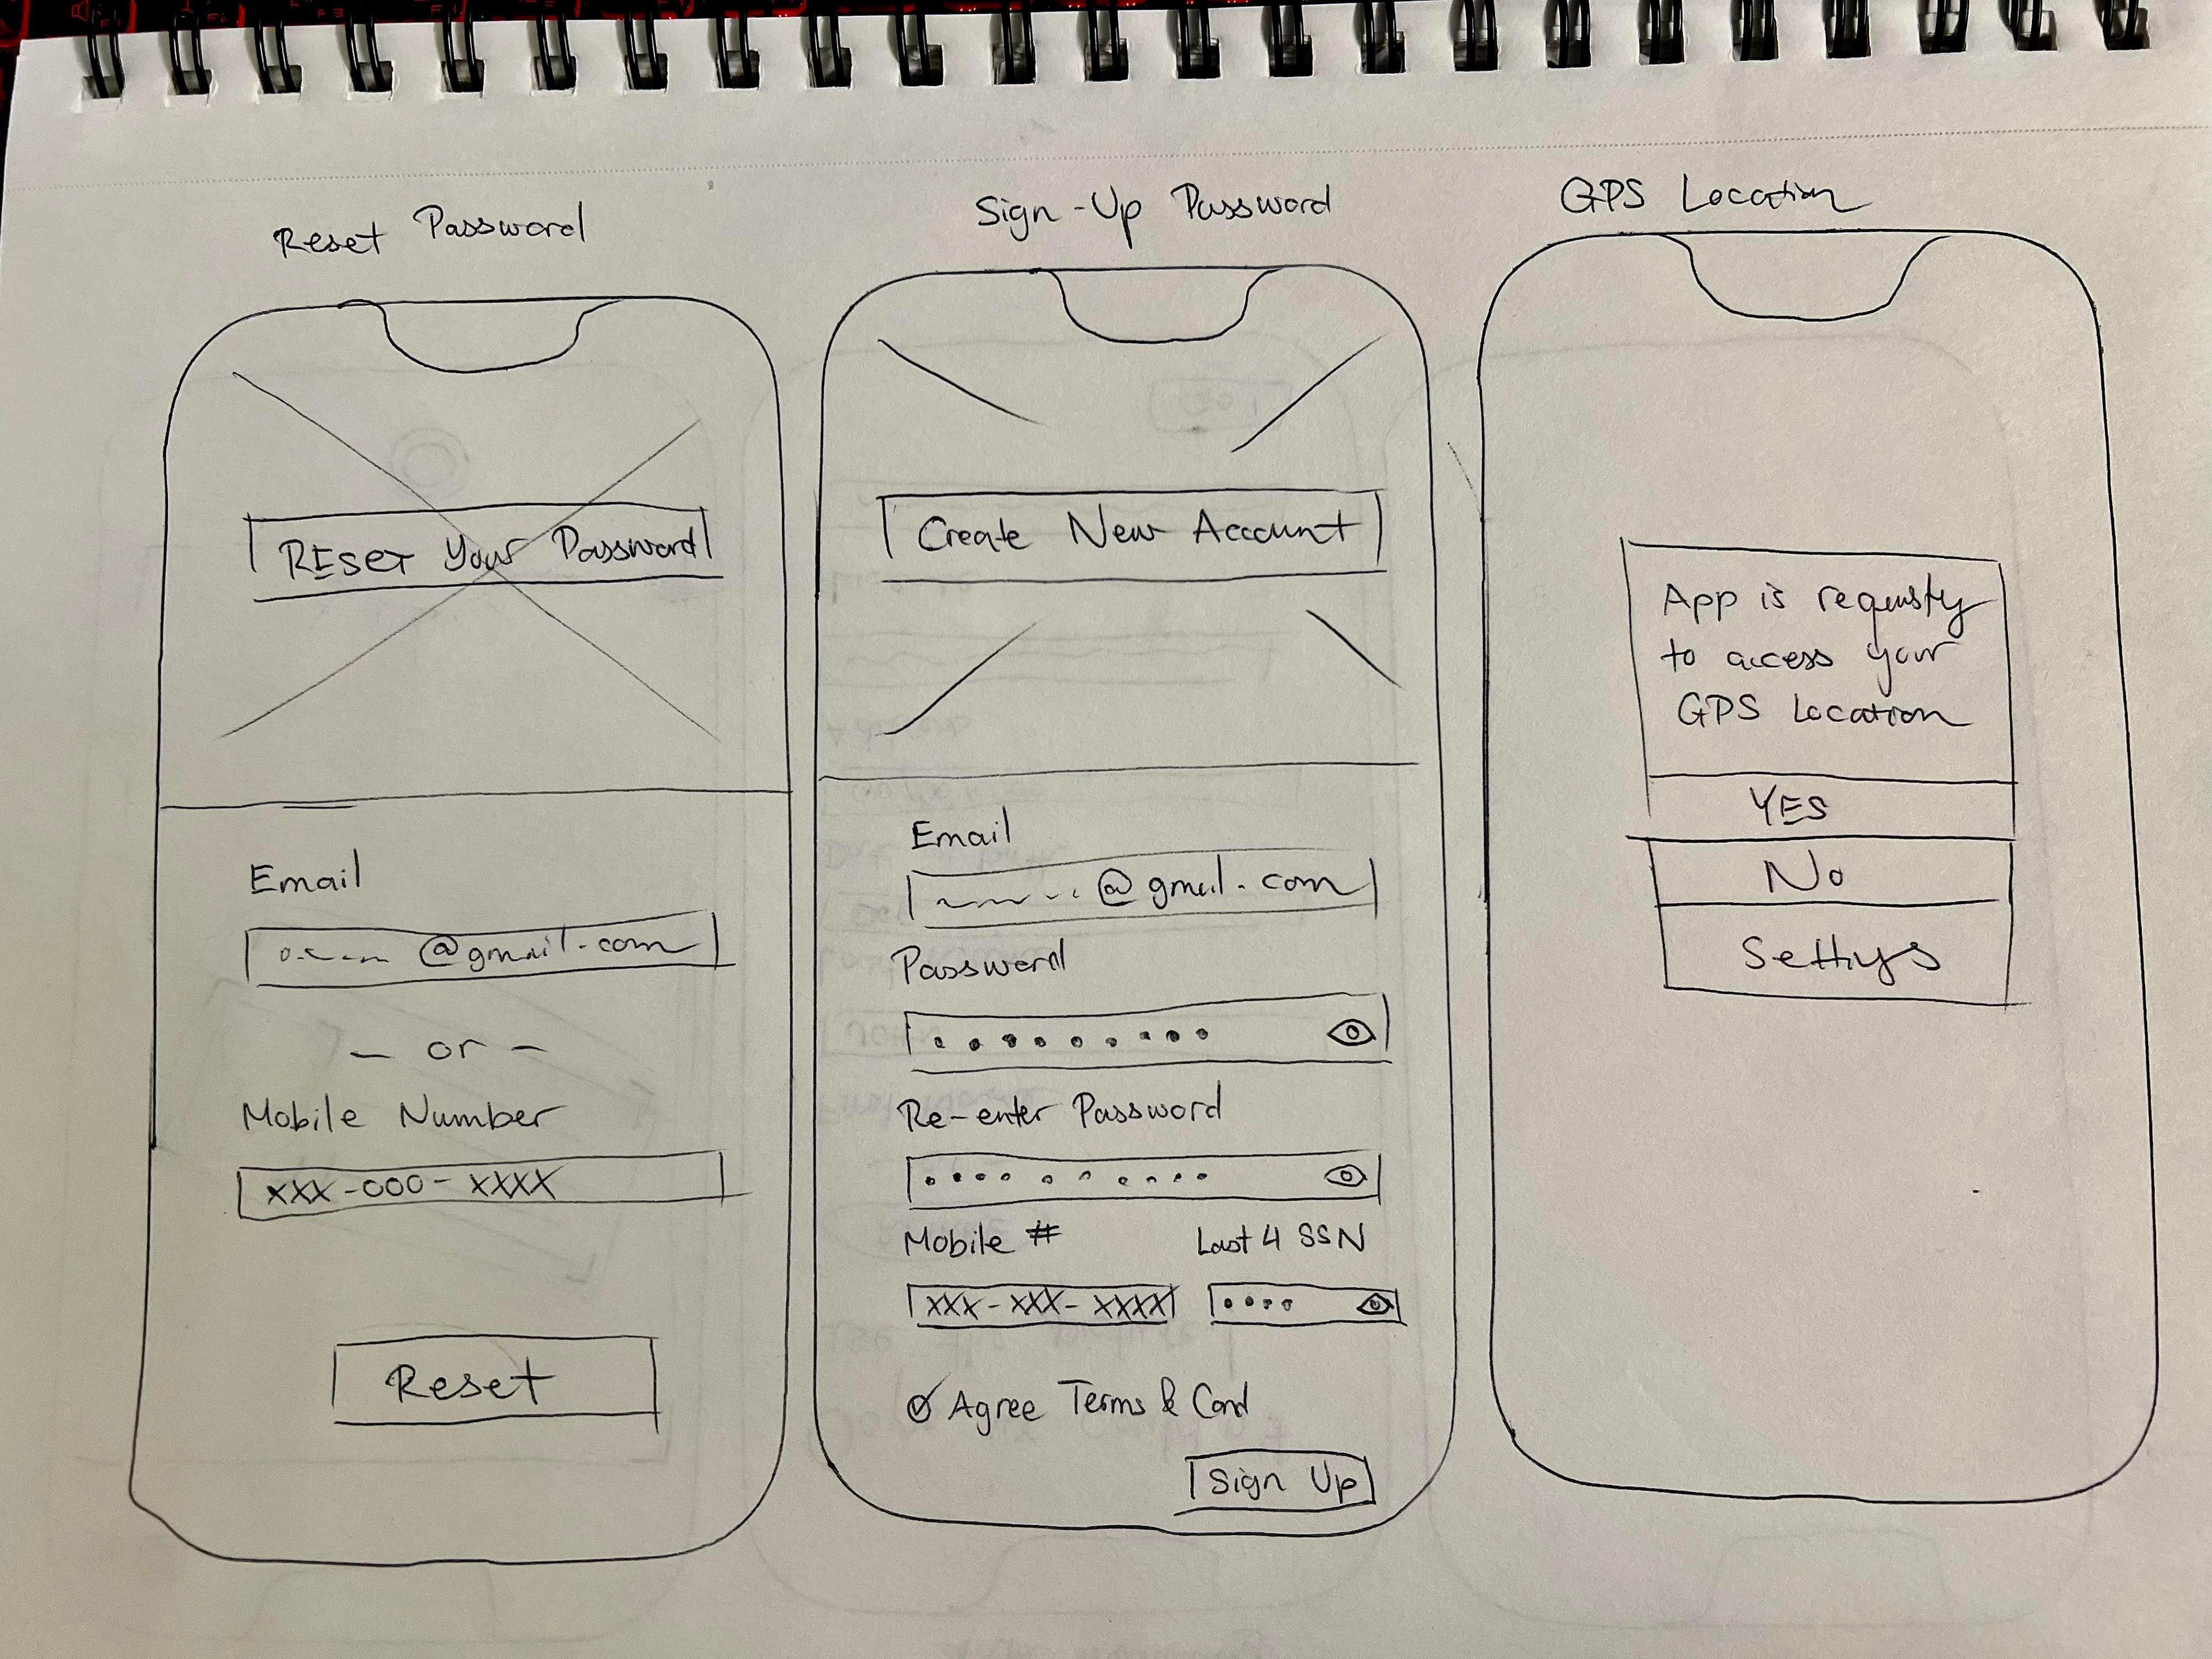 Reset Password
RESET Your Password
Email
@gmail.com
- or -
Mobile Number
XXX-000-XXXX
Reset
Sign-Up Password
Create New Account
Email
@gmail.com
Password
Re-enter Password
Mobile # Last 4 SSN
XXX-XXX-XXXX
Agree Terms & Cond
Sign Up
GPS Location
App is requesting
to access your
GPS Location
YES
No
Settings